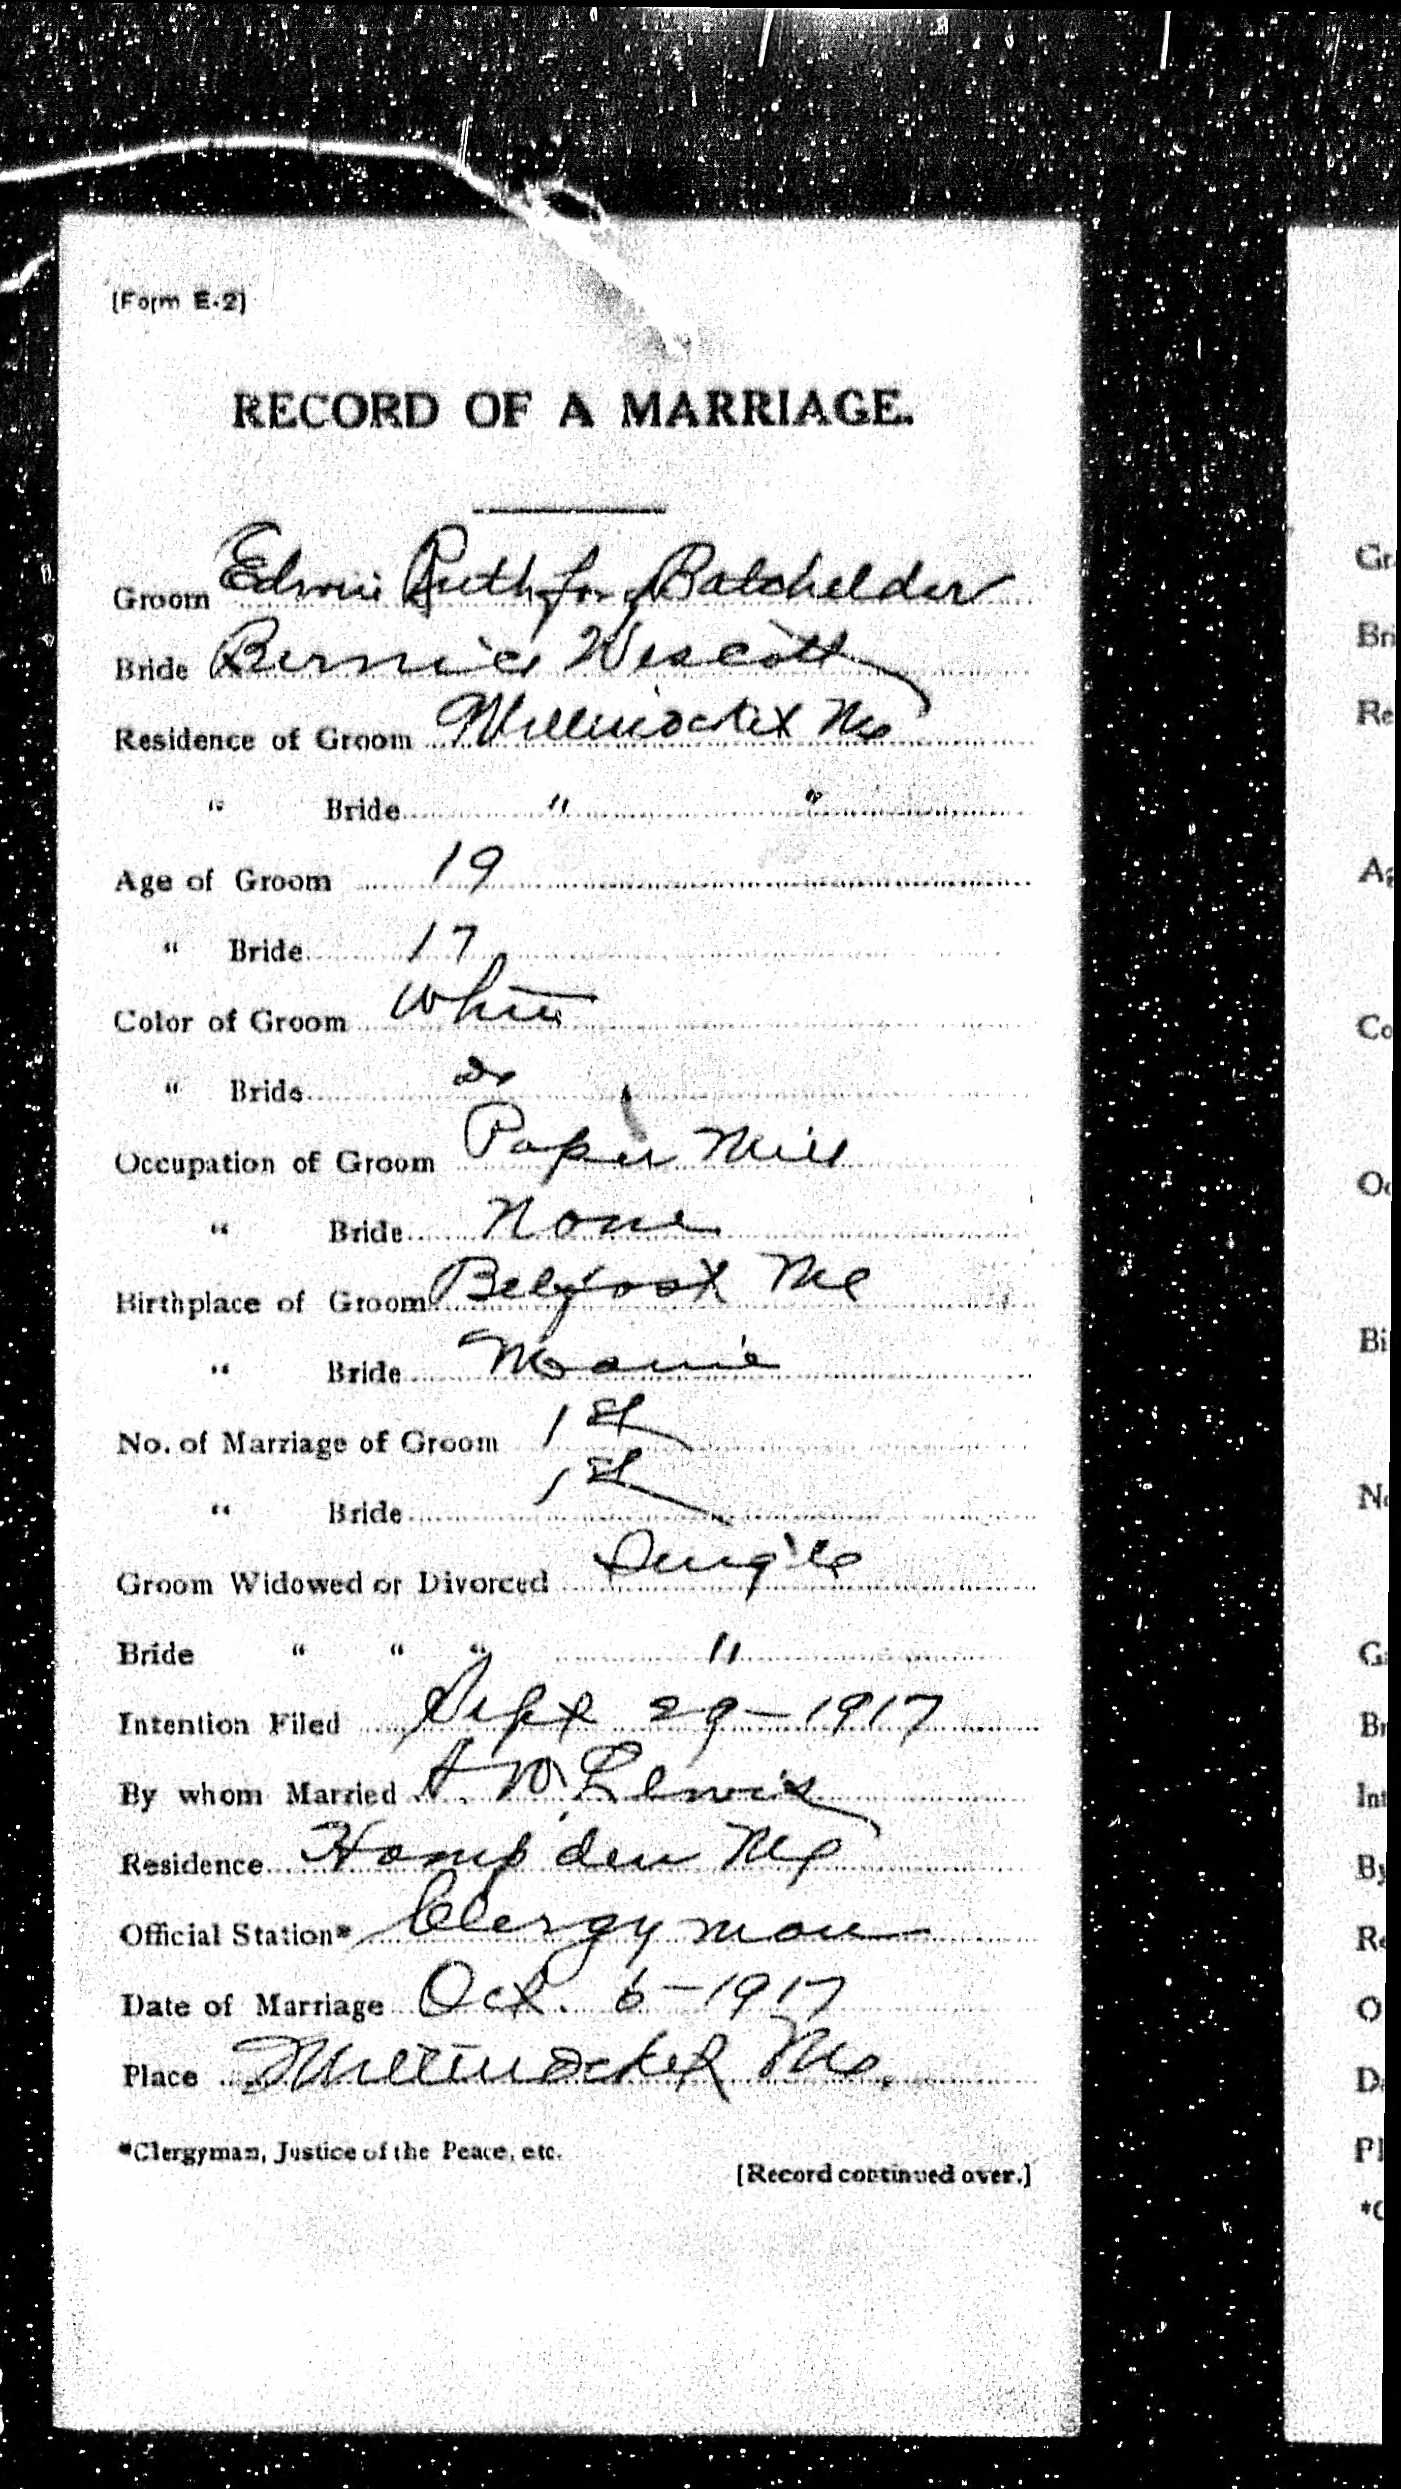 [Form E-2]
RECORD OF A MARRIAGE.
Groom Edwin Batchelder
Bride Bernice Wescott
Residence of Groom Millinocket Me
" Bride " "
Age of Groom 19
" Bride 17
Color of Groom White
" Bride Do
Occupation of Groom Paper Mill
" Bride None
Birthplace of Groom Belfast Me
" Bride Maine
No. of Marriage of Groom 1st
" Bride 1st
Groom Widowed or Divorced Single
Bride " " " "
Intention Filed Sept 29-1917
By whom Married A. W. Lewis
Residence Hampden Me
Official Station* Clergyman
Date of Marriage Oct. 6-1917
Place Millinocket Me.
*Clergyman, Justice of the Peace, etc.
[Record continued over.]
Gr
Bri
Re
Ag
Co
Oc
Bi
No
G
Br
Int
By
Re
O
Da
Pl